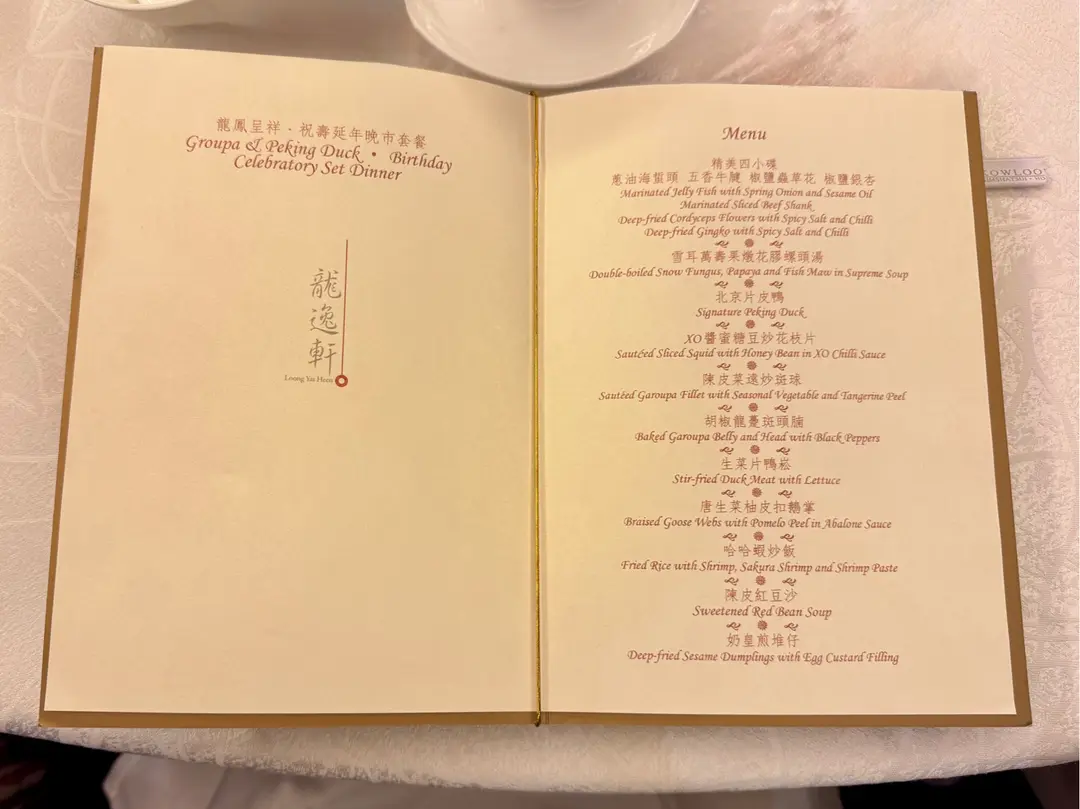 龍鳳呈祥 · 祝壽延年晚市套餐
Groupa & Peking Duck • Birthday
Celebratory Set Dinner
龍逸軒
Loong Yat Heen
Menu
精美四小碟
蔥油海蜇頭 五香牛腱 椒鹽蟲草花 椒鹽銀杏
Marinated Jelly Fish with Spring Onion and Sesame Oil
Marinated Sliced Beef Shank
Deep-fried Cordyceps Flowers with Spicy Salt and Chilli
Deep-fried Gingko with Spicy Salt and Chilli
雪耳萬壽果燉花膠螺頭湯
Double-boiled Snow Fungus, Papaya and Fish Maw in Supreme Soup
北京片皮鴨
Signature Peking Duck
XO醬蜜糖豆炒花枝片
Sautéed Sliced Squid with Honey Bean in XO Chilli Sauce
陳皮菜遠炒斑球
Sautéed Garoupa Fillet with Seasonal Vegetable and Tangerine Peel
胡椒龍躉斑頭腩
Baked Garoupa Belly and Head with Black Peppers
生菜片鴨崧
Stir-fried Duck Meat with Lettuce
唐生菜柚皮扣鵝掌
Braised Goose Webs with Pomelo Peel in Abalone Sauce
哈哈蝦炒飯
Fried Rice with Shrimp, Sakura Shrimp and Shrimp Paste
陳皮紅豆沙
Sweetened Red Bean Soup
奶皇煎堆仔
Deep-fried Sesame Dumplings with Egg Custard Filling